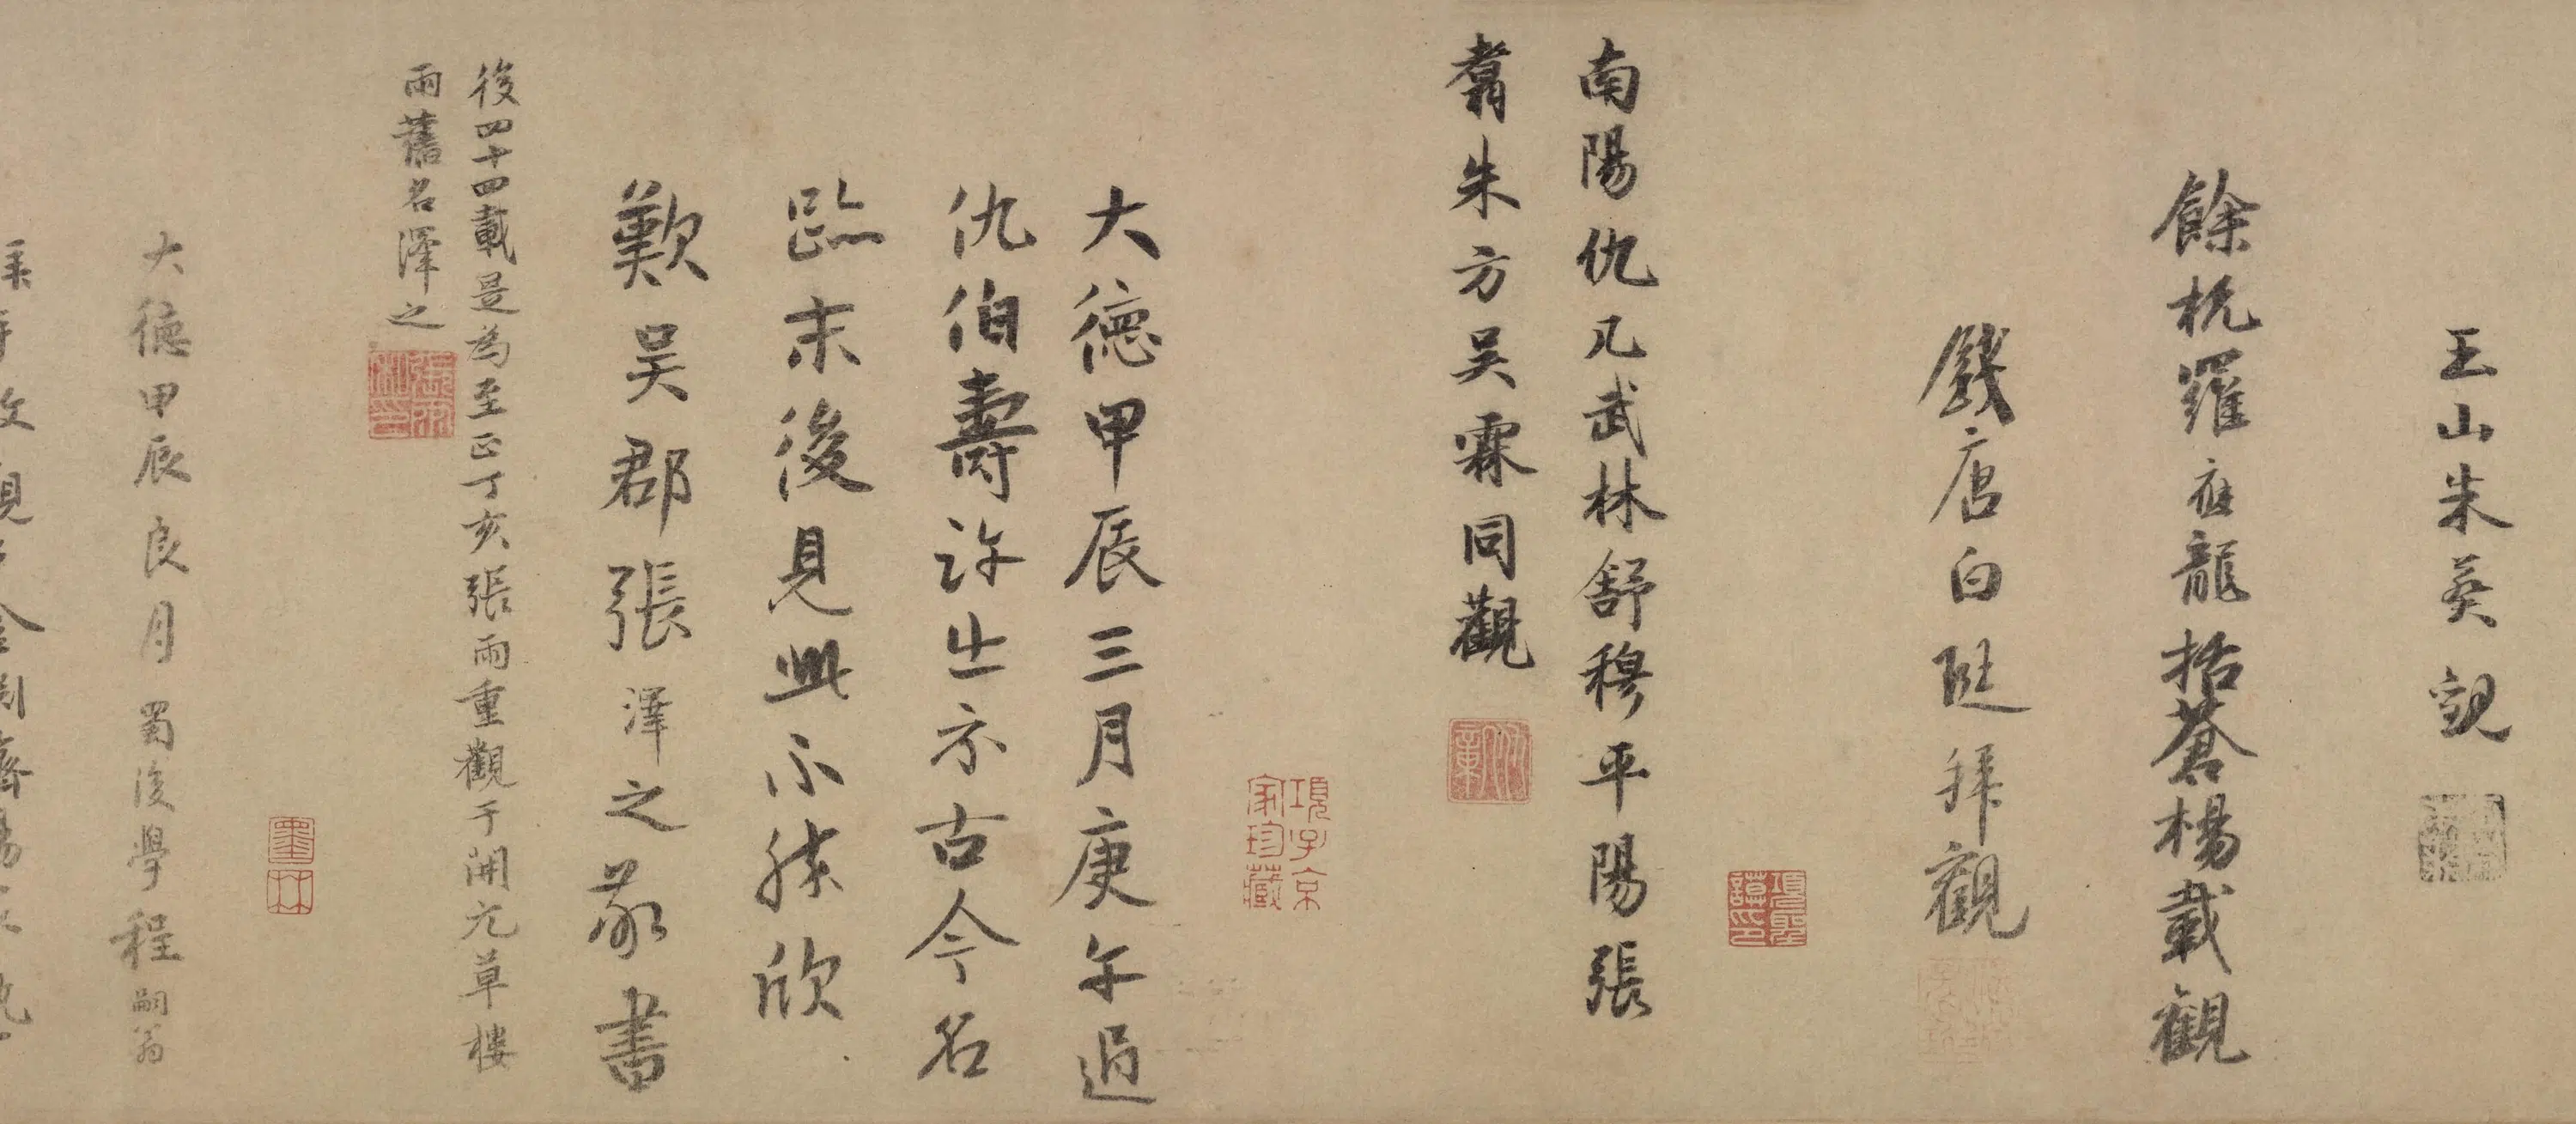 玉山朱英觀
餘杭羅應龍括蒼楊載觀
錢唐白珽拜觀
項聖謨印
南陽仇几武林舒穆平陽張
翥朱方吳霖同觀
項子京家珍藏
大德甲辰三月庚午過
仇伯壽許出示古今名
跡末後見此不勝欣
歎吳郡張澤之敬書
後四十四載是為至正丁亥張雨重觀于開元草樓
雨舊名澤之
墨林
大德甲辰良月蜀後學程嗣翁